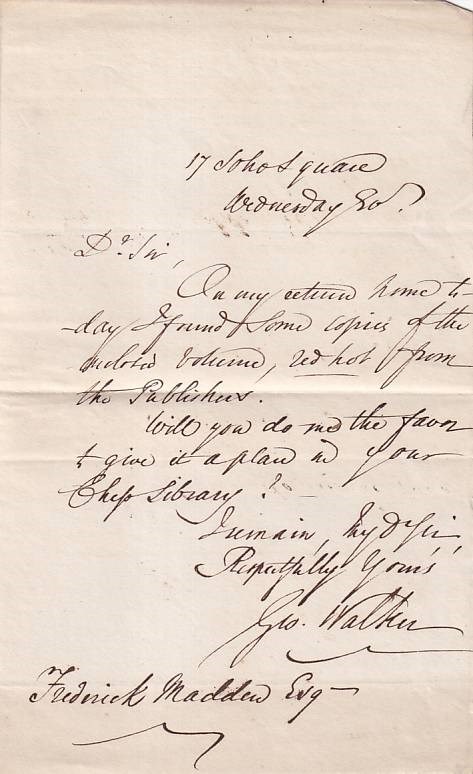 17 Soho Square
Wednesday Evg.
Dr. Sir,
On my return home to-
-day I found some copies of the
enclosed volume, red hot from
the Publishers.
Will you do me the favor
to give it a place in your
Chess Library? –
I remain, My D Sir,
Respectfully Yours,
Geo. Walker
Frederick Madden Esq –